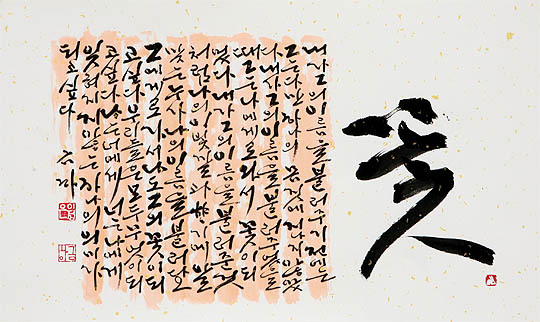 꽃
내가 그의 이름을 불러주기 전에는
그는 다만 하나의 몸짓에 지나지 않았
다 내가 그의 이름을 불러주었을
때 그는 나에게로 와서 꽃이 되
었다 내가 그의 이름을 불러준 것
처럼 나의 이 빛깔과 香기에 알
맞는 누가 나의 이름을 불러다오
그에게로 가서 나도 그의 꽃이 되
고 싶다 우리들은 모두 무엇이 되
고 싶다 나는 너에게 너는 나에게
잊혀지지 않는 하나의 의미가
되고 싶다